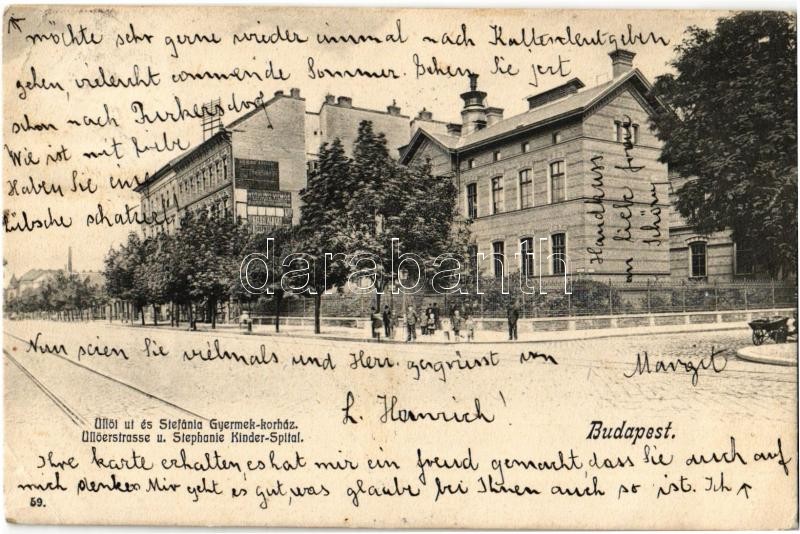 möchte sehr gerne wieder einmal nach Kaltenleutgeben
gehen, vieleicht commende Sommer. Gehen Sie jezt
schon nach Purkersdorf
Wie ist mit liebe
Haben Sie eine
hübsche
Handkuss
an liebe frau
Schön
darabanth.com
Nun seien Sie vielmals und Herr gegrüsst von Margit
L. Heinrich!
Üllői ut és Stefánia Gyermek-korház.
Üllőerstrasse u. Stephanie Kinder-Spital.
Budapest.
Ihre karte erhalten, es hat mir ein freud gemacht, dass Sie auch auf
mich denken. Mir geht es gut, was glaube bei Ihnen auch so ist. Ich
59.